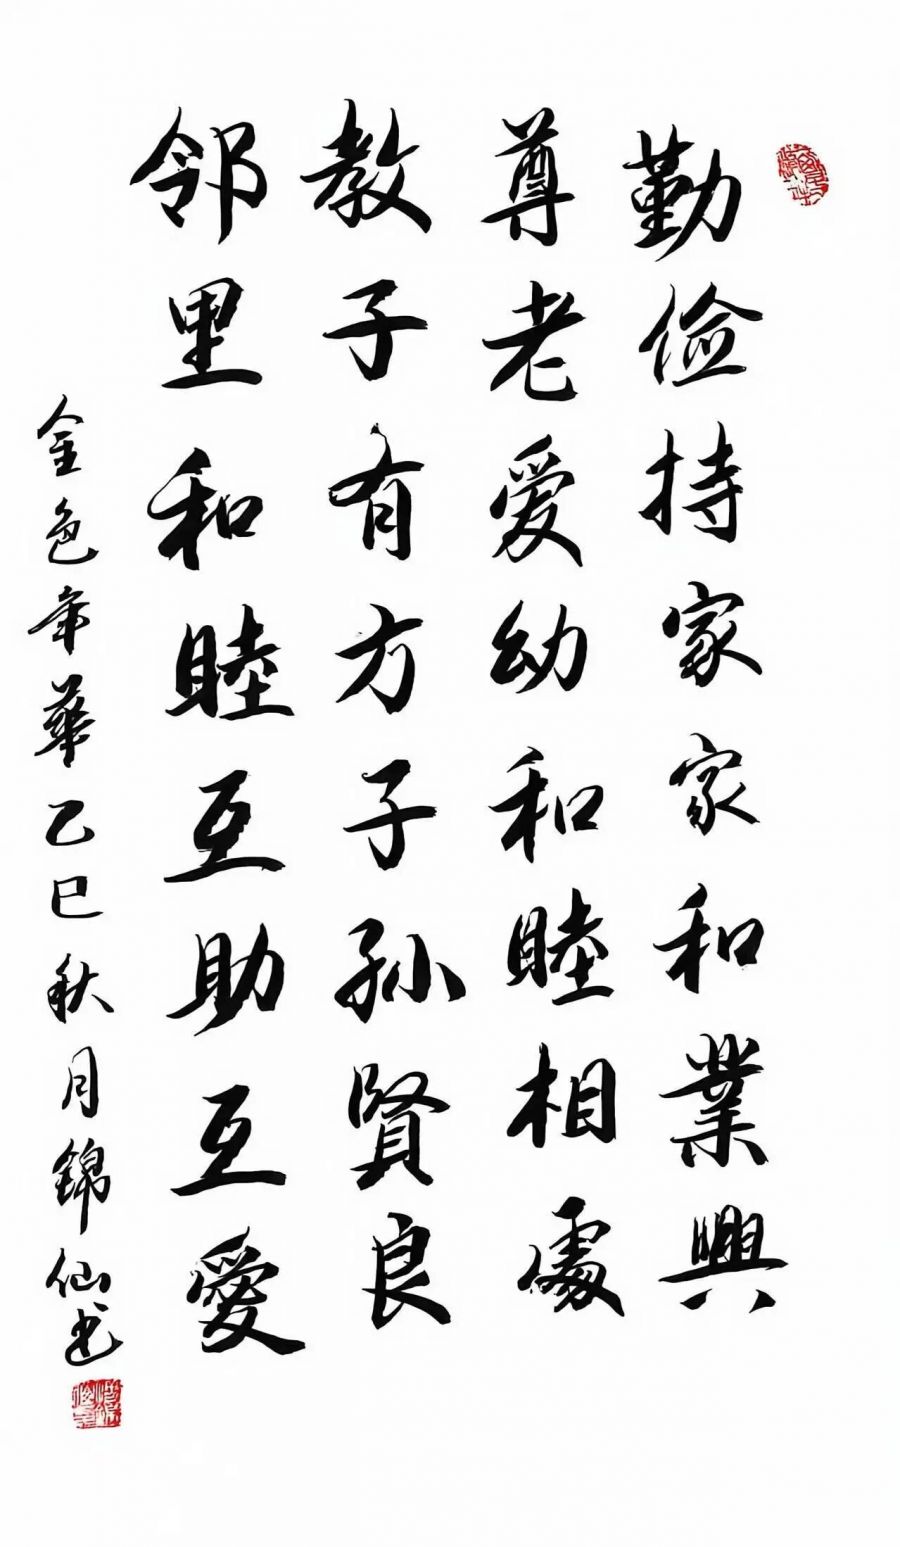 勤俭持家家和業興
尊老爱幼和睦相處
教子有方子孙賢良
邻里和睦互助互愛
金色年華乙巳秋月錦仙书